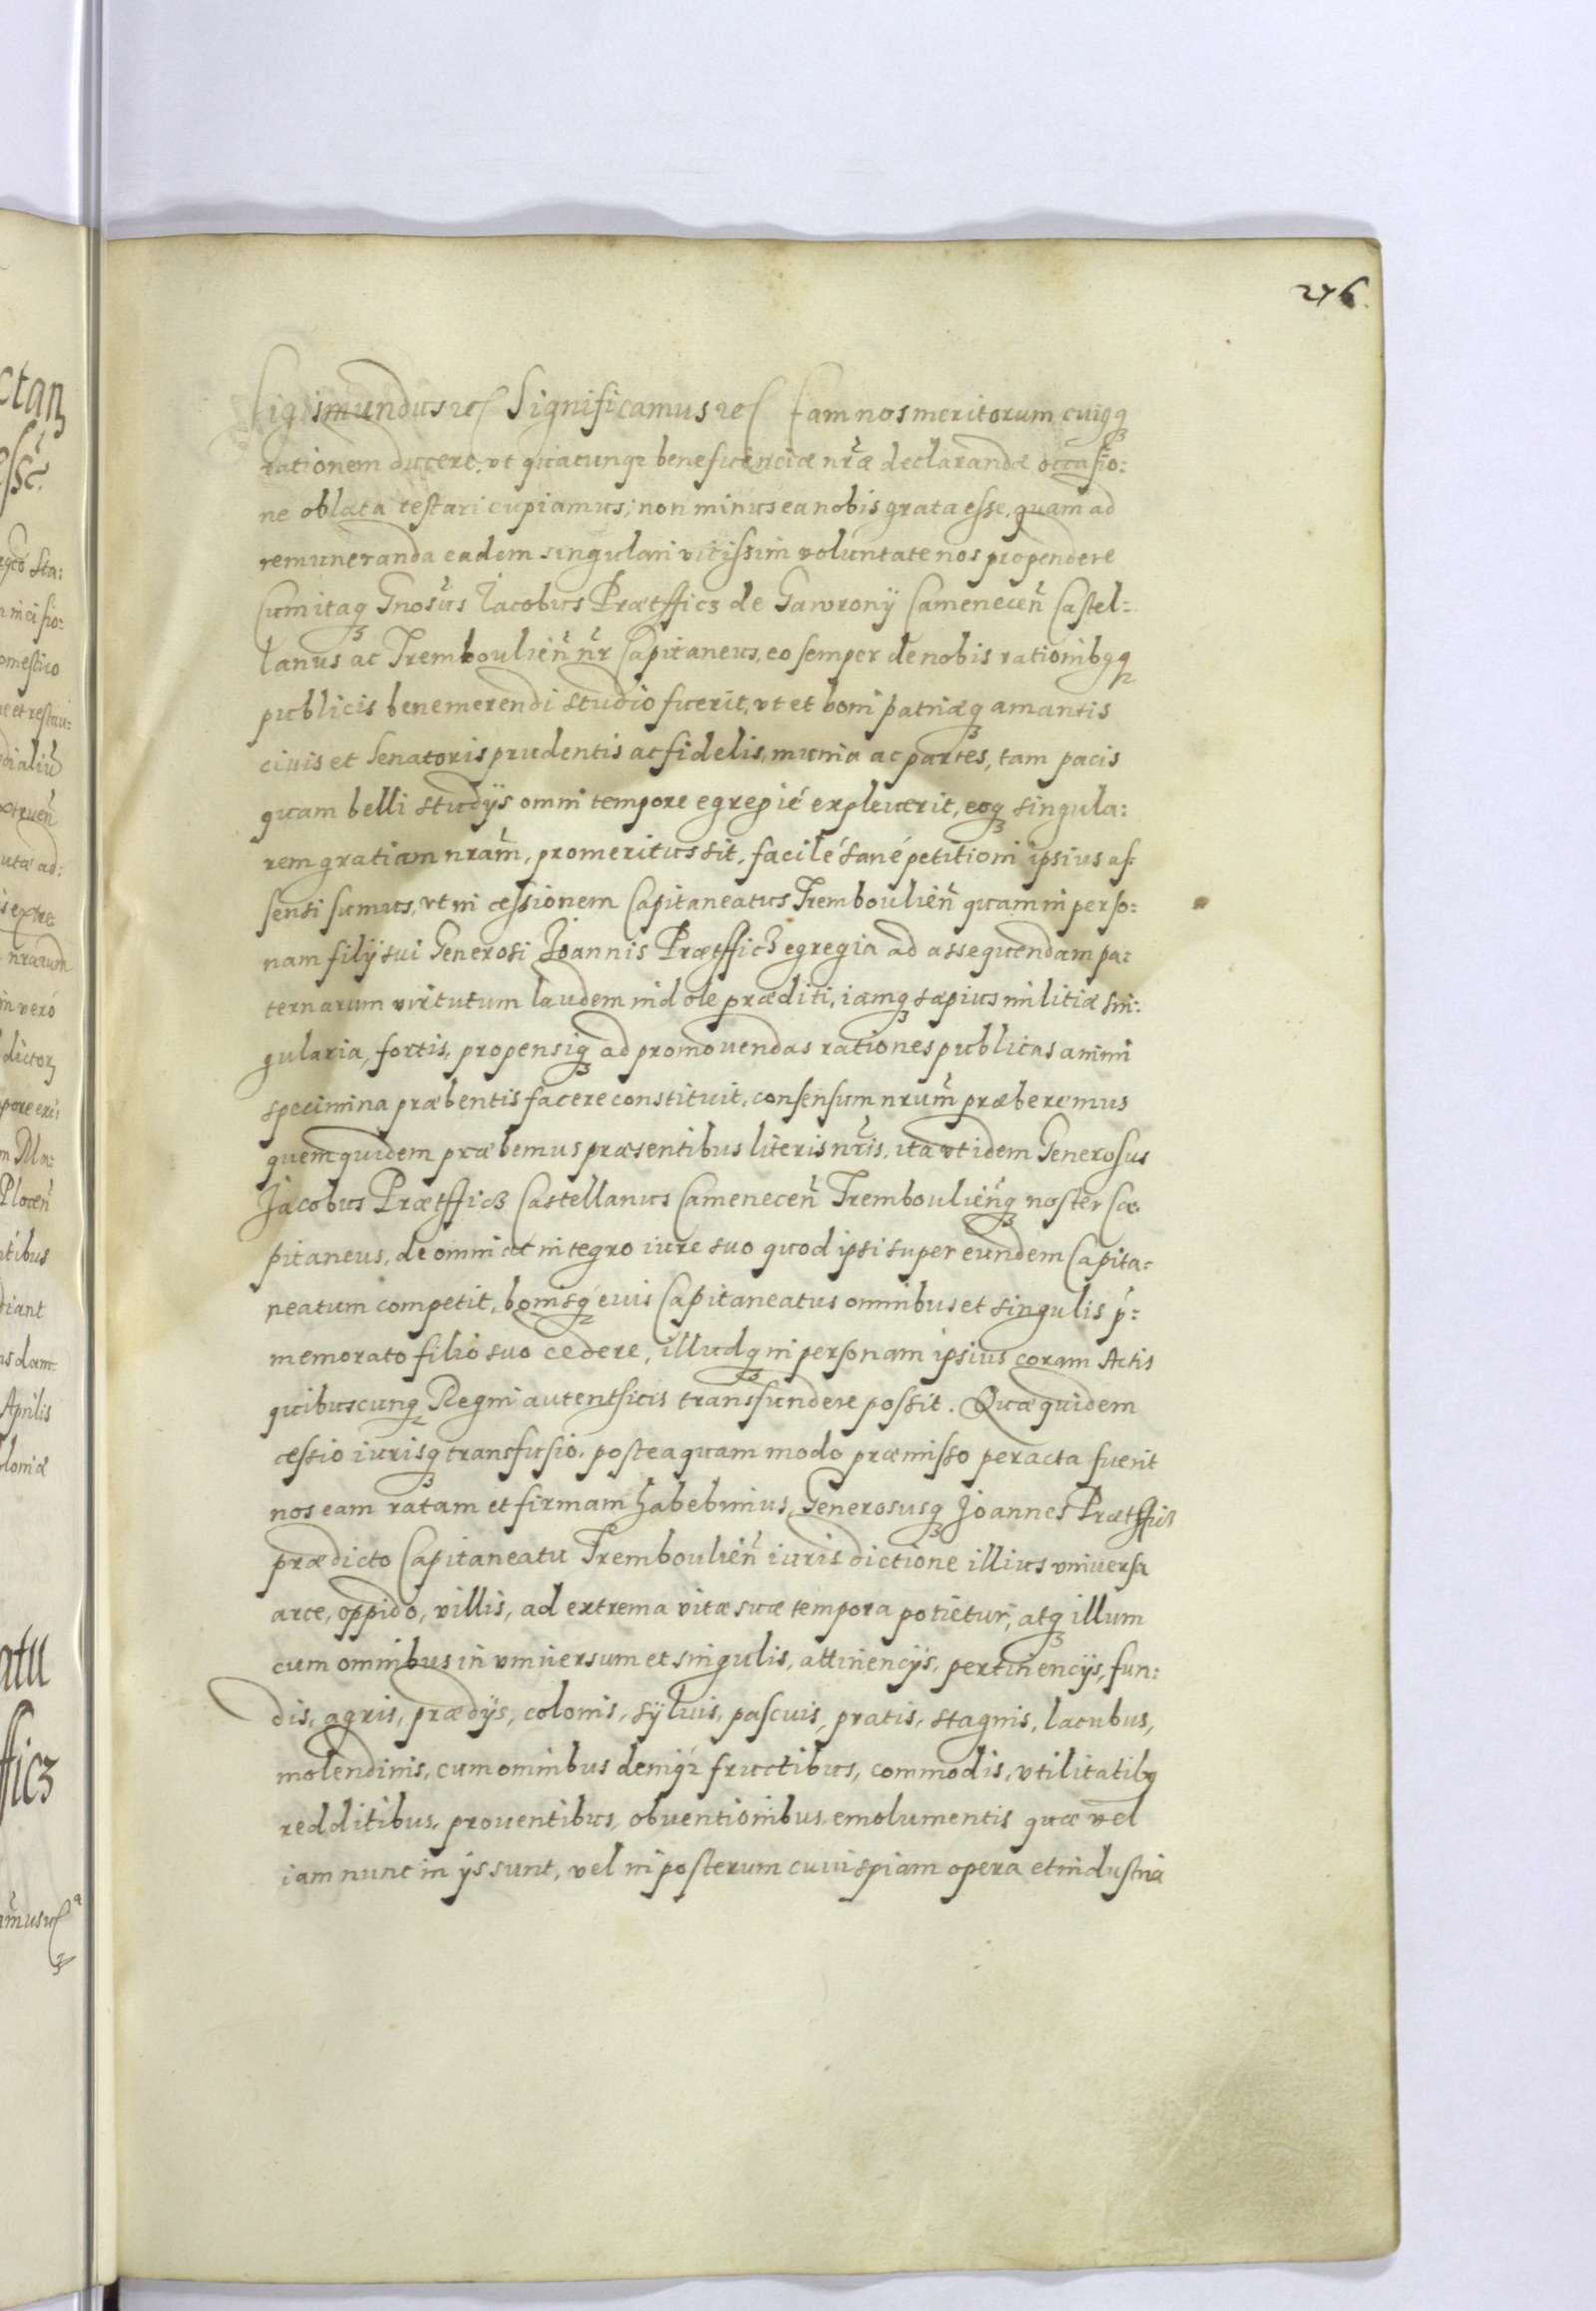 276.
Sigismundus etc Significamus etc Eam nos meritorum cuiqq
rationem ducere, vt quacunq beneficenciæ nræ declarandæ occasio:
ne oblata testari cupiamus; non minus ea nobis grata esse, quam ad
remuneranda eadem singulari vicissim voluntate nos propendere
Cum itaq Gnosus Jacobus Prætfficz de Gawrony Camenecen Castel:
lanus ac Tremboulien nr Capitaneus, eo semper de nobis rationibqq
publicis benemerendi studio fuerit, vt et boni patriæq amantis
ciuis et Senatoris prudentis ac fidelis, munia ac partes, tam pacis
quam belli studijs omni tempore egregié expleuerit, eoq singula:
rem gratiam nram, promeritus sit, facilé sané petitioni ipsius as:
sensi sumus, vt in cessionem Capitaneatus Tremboulien quam in perso:
nam filij sui Generosi Joannis Prætfficz egregia ad assequendam pa:
ternarum virtutum laudem indole præditi, iamq sæpius militiæ sin:
gularia, fortis, propensiq ad promouendas rationes publicas animi
specimina præbentis facere constituit, consensum nrum præberemus
quem quidem præbemus præsentibus literis nris, ita vt idem Generosus
Jacobus Prætfficz Castellanus Camenecen Trembouliénq noster Ca
pitaneus, de omni et integro iure suo quod ipsi super eundem Capita:
neatum competit, bonisq euis Capitaneatus omnibus et singulis p:
memorato filio suo cedere, illudq in personam ipsius coram Actis
quibuscunq Regni autentficis transfundere possit. Quæ quidem
cessio iurisq transfusio, posteaquam modo præmisso peracta fuerit
nos eam ratam et firmam habebimus, Generosusq Joannes Prætfficz
prædicto Capitaneatu Tremboulien iurisdictione illius vniuersa
arce, oppido, villis, ad extrema vitæ suæ tempora potietur, atq illum
cum omnibus in vniuersum et singulis, attinencijs, pertinencijs, fun:
dis, agris, prædijs, colonis, syluis, pascuis, pratis, stagnis, lacubus,
molendinis, cum omnibus deniq fructibus, commodis, vtilitatibq
redditibus, prouentibus, obuentionibus, emolumentis quæ vel
iam nunc in ijs sunt, vel in posterum cuiuispiam opera et industria